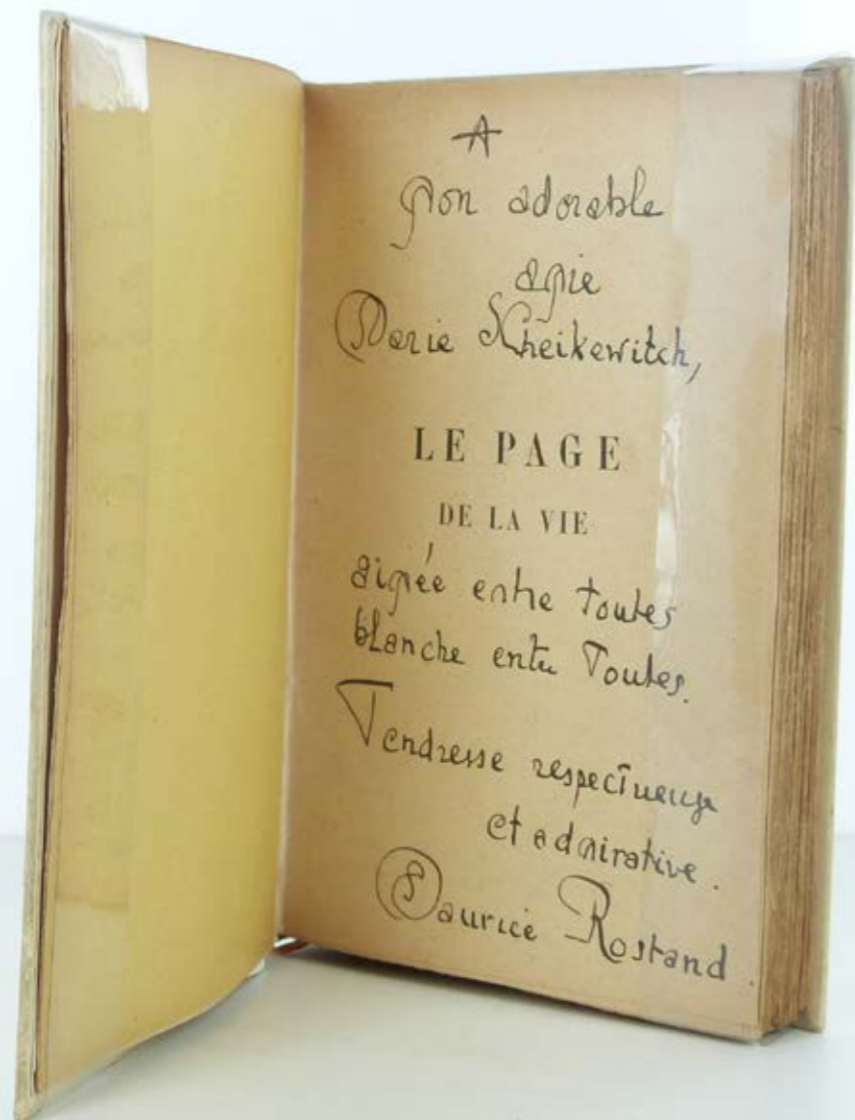 A
mon adorable
amie
Marie Scheikewitch,
LE PAGE
DE LA VIE
aimée entre toutes
blanche entre Toutes.
Tendresse respectueuse
et admirative.
Maurice Rostand